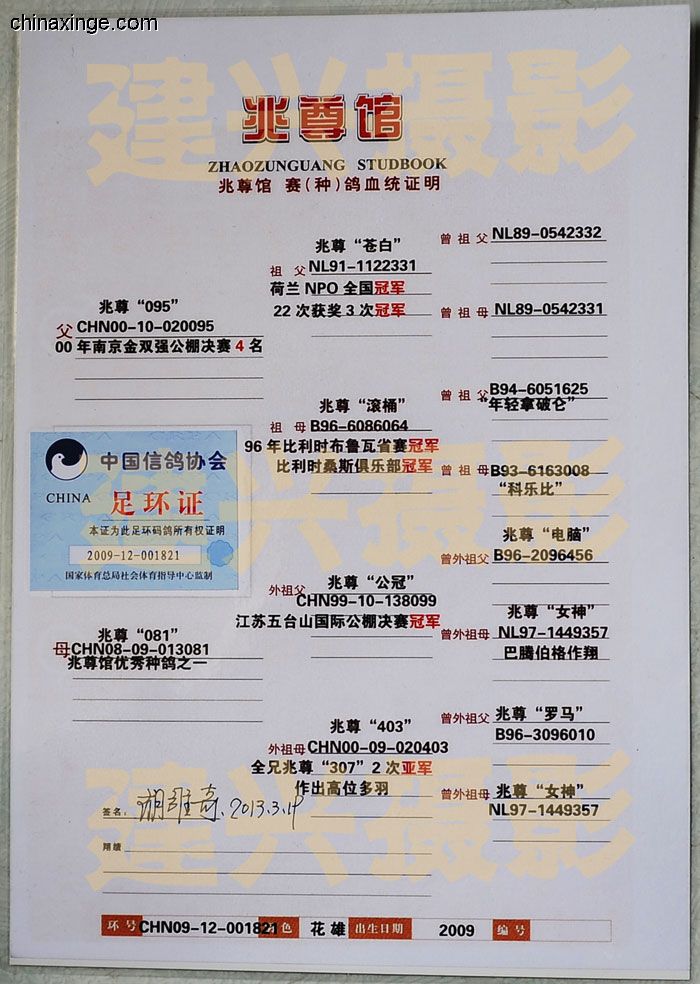 chinaxinge.com
建兴摄影
兆尊馆
ZHAOZUNGUANG STUDBOOK
兆尊馆 赛(种)鸽血统证明
兆尊“095”
父 CHN00-10-020095
00年南京金双强公棚决赛4名
兆尊“苍白”
祖父 NL91-1122331
荷兰NPO全国冠军
22次获奖3次冠军
曾祖父 NL89-0542332
曾祖母 NL89-0542331
兆尊“滚桶”
祖母 B96-6086064
96年比利时布鲁瓦省赛冠军
比利时桑斯俱乐部冠军
曾祖父 B94-6051625
“年轻拿破仑”
曾祖母 B93-6163008
“科乐比”
建兴摄影
中国信鸽协会
CHINA 足环证
本证为此足环码鸽所有权证明
2009-12-001821
国家体育总局社会体育指导中心监制
兆尊“081”
母 CHN08-09-013081
兆尊馆优秀种鸽之一
兆尊“公冠”
外祖父 CHN99-10-138099
江苏五台山国际公棚决赛冠军
兆尊“电脑”
曾外祖父 B96-2096456
兆尊“女神”
曾外祖母 NL97-1449357
巴腾伯格作翔
兆尊“403”
外祖母 CHN00-09-020403
全兄兆尊“307”2次亚军
作出高位多羽
兆尊“罗马”
曾外祖父 B96-3096010
兆尊“女神”
曾外祖母 NL97-1449357
建兴摄影
签名: 2013.3.19
翔绩
环号 CHN09-12-001821 色 花雄 出生日期 2009 编号